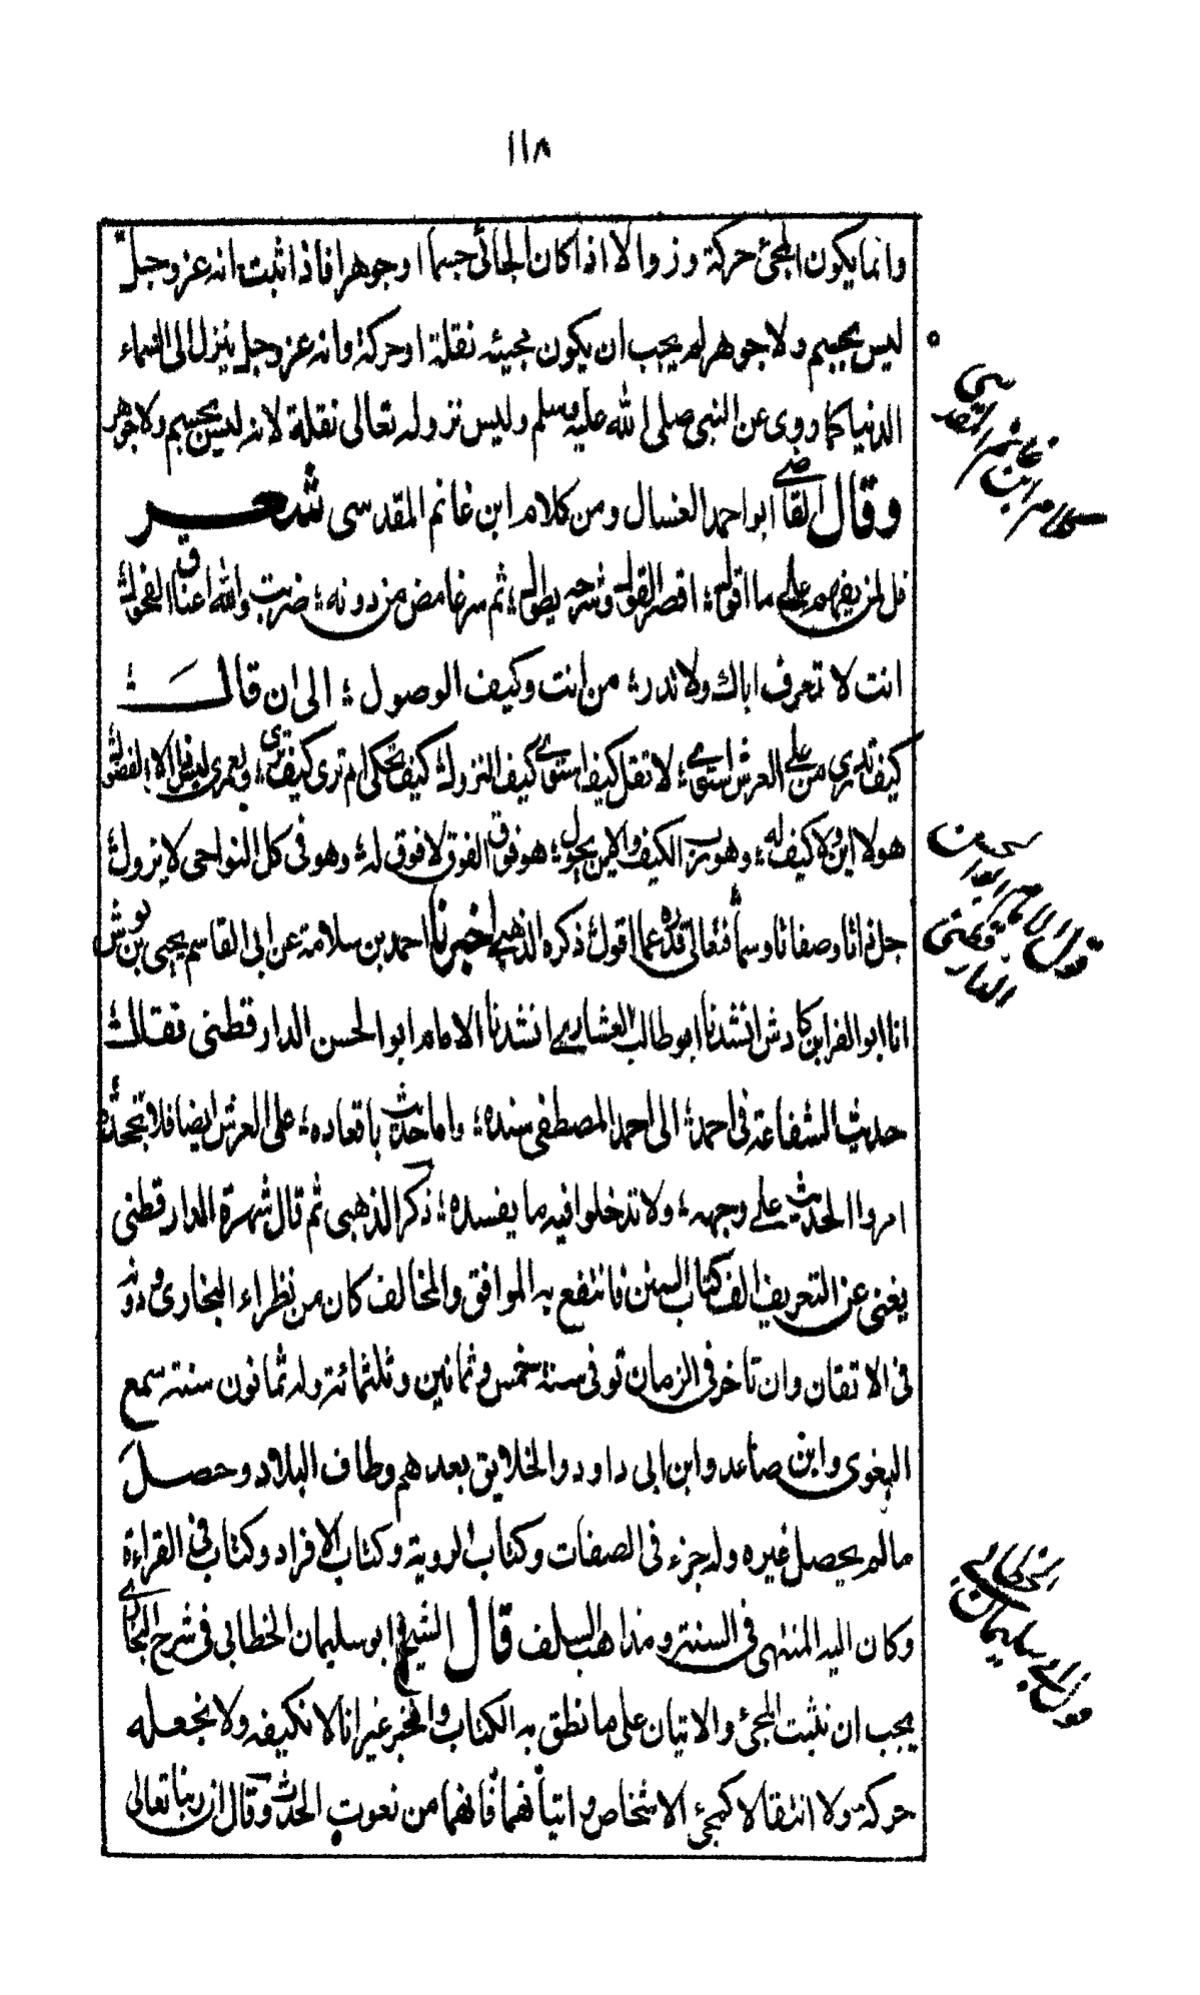 ١١٨
وانما يكون المجئ حركة وزوالا اذا كان الجائى جسما اوجوهرا فاذا ثبت انه عزوجل
ليس بجسم ولاجوهر لم يجب ان يكون مجيئه نقلة اوحركة وانه عزوجل ينزل الى السماء
الدنيا كما روى عن النبى صلى الله عليه وسلم وليس نزوله تعالى نقلة لانه ليس بجسم ولاجوهر
وقال القاضى ابواحمد العسال ومن كلام ابن غانم المقدسى شعر
قل لمن يفهم على ما اقول؛ اقصر القول وشرحه يطول؛ ثم سر غامض من دونه؛ ضربت والله اعناق الفحول
انت لا تعرف اياك ولا تدر؛ من انت وكيف الوصول؛ الى ان قال
كيف تدرى من على العرش استوى؛ لا تقل كيف استوى كيف النزول كيف تحكى ام ترى كيف ترى؛ ولعمرى ليس ذا الا الفضول
هو لا اين ولا كيف له؛ وهو رب الكيف والاين يحول؛ هو فوق الفوق لا فوق له؛ وهو فى كل النواحى لا يزول
جل ذاتا وصفاتا وسما؛ فتعالى قدره عما اقول؛ ذكره الذهبى اخبرنا احمد بن سلامة عن ابى القاسم يحيى بن بوش
انا ابوالعز ابن كادش انشدنا ابوطالب العشارى انشدنا الامام ابوالحسن الدارقطنى فقال
حديث الشفاعة فى احمد؛ الى احمد المصطفى سنده؛ واما حديث باقعاده؛ على العرش ايضا فلا تجحده
امروا الحديث على وجهه؛ ولا تدخلوا فيه ما يفسده؛ ذكر الذهبى ثم قال شهرة الدارقطنى
يغنى عن التعريف الف كتاب السنن فانتفع به الموافق والمخالف كان من نظراء البخارى ودونه
فى الاتقان وان تاخر فى الزمان توفى سنة خمس وثمانين وثلثمائة وله ثمانون سنته سمع
البغوى وابن صاعد وابن ابى داود والخلايق بعدهم وطاف البلاد وحصل
مالم يحصل غيره وله جزء فى الصفات وكتاب الروية وكتاب الافراد وكتاب فى القراءة
وكان اليه المنتهى فى السنة ومذاهب السلف قال الشيخ ابوسليمان الخطابى فى شرح البخارى
يجب ان نثبت المجئ والاتيان على ما نطق به الكتاب والخبر غير انا لا نكيفه ولا نجعله
حركة ولا انتقالا كمجئ الاشخاص واتيانهما فانهما من نعوت الحدث وقال ان ربنا تعالى
كلام ابن غانم المقدسى
قول الامام ابوالحسن
الدارقطنى
قول ابى سليمان
الخطابى